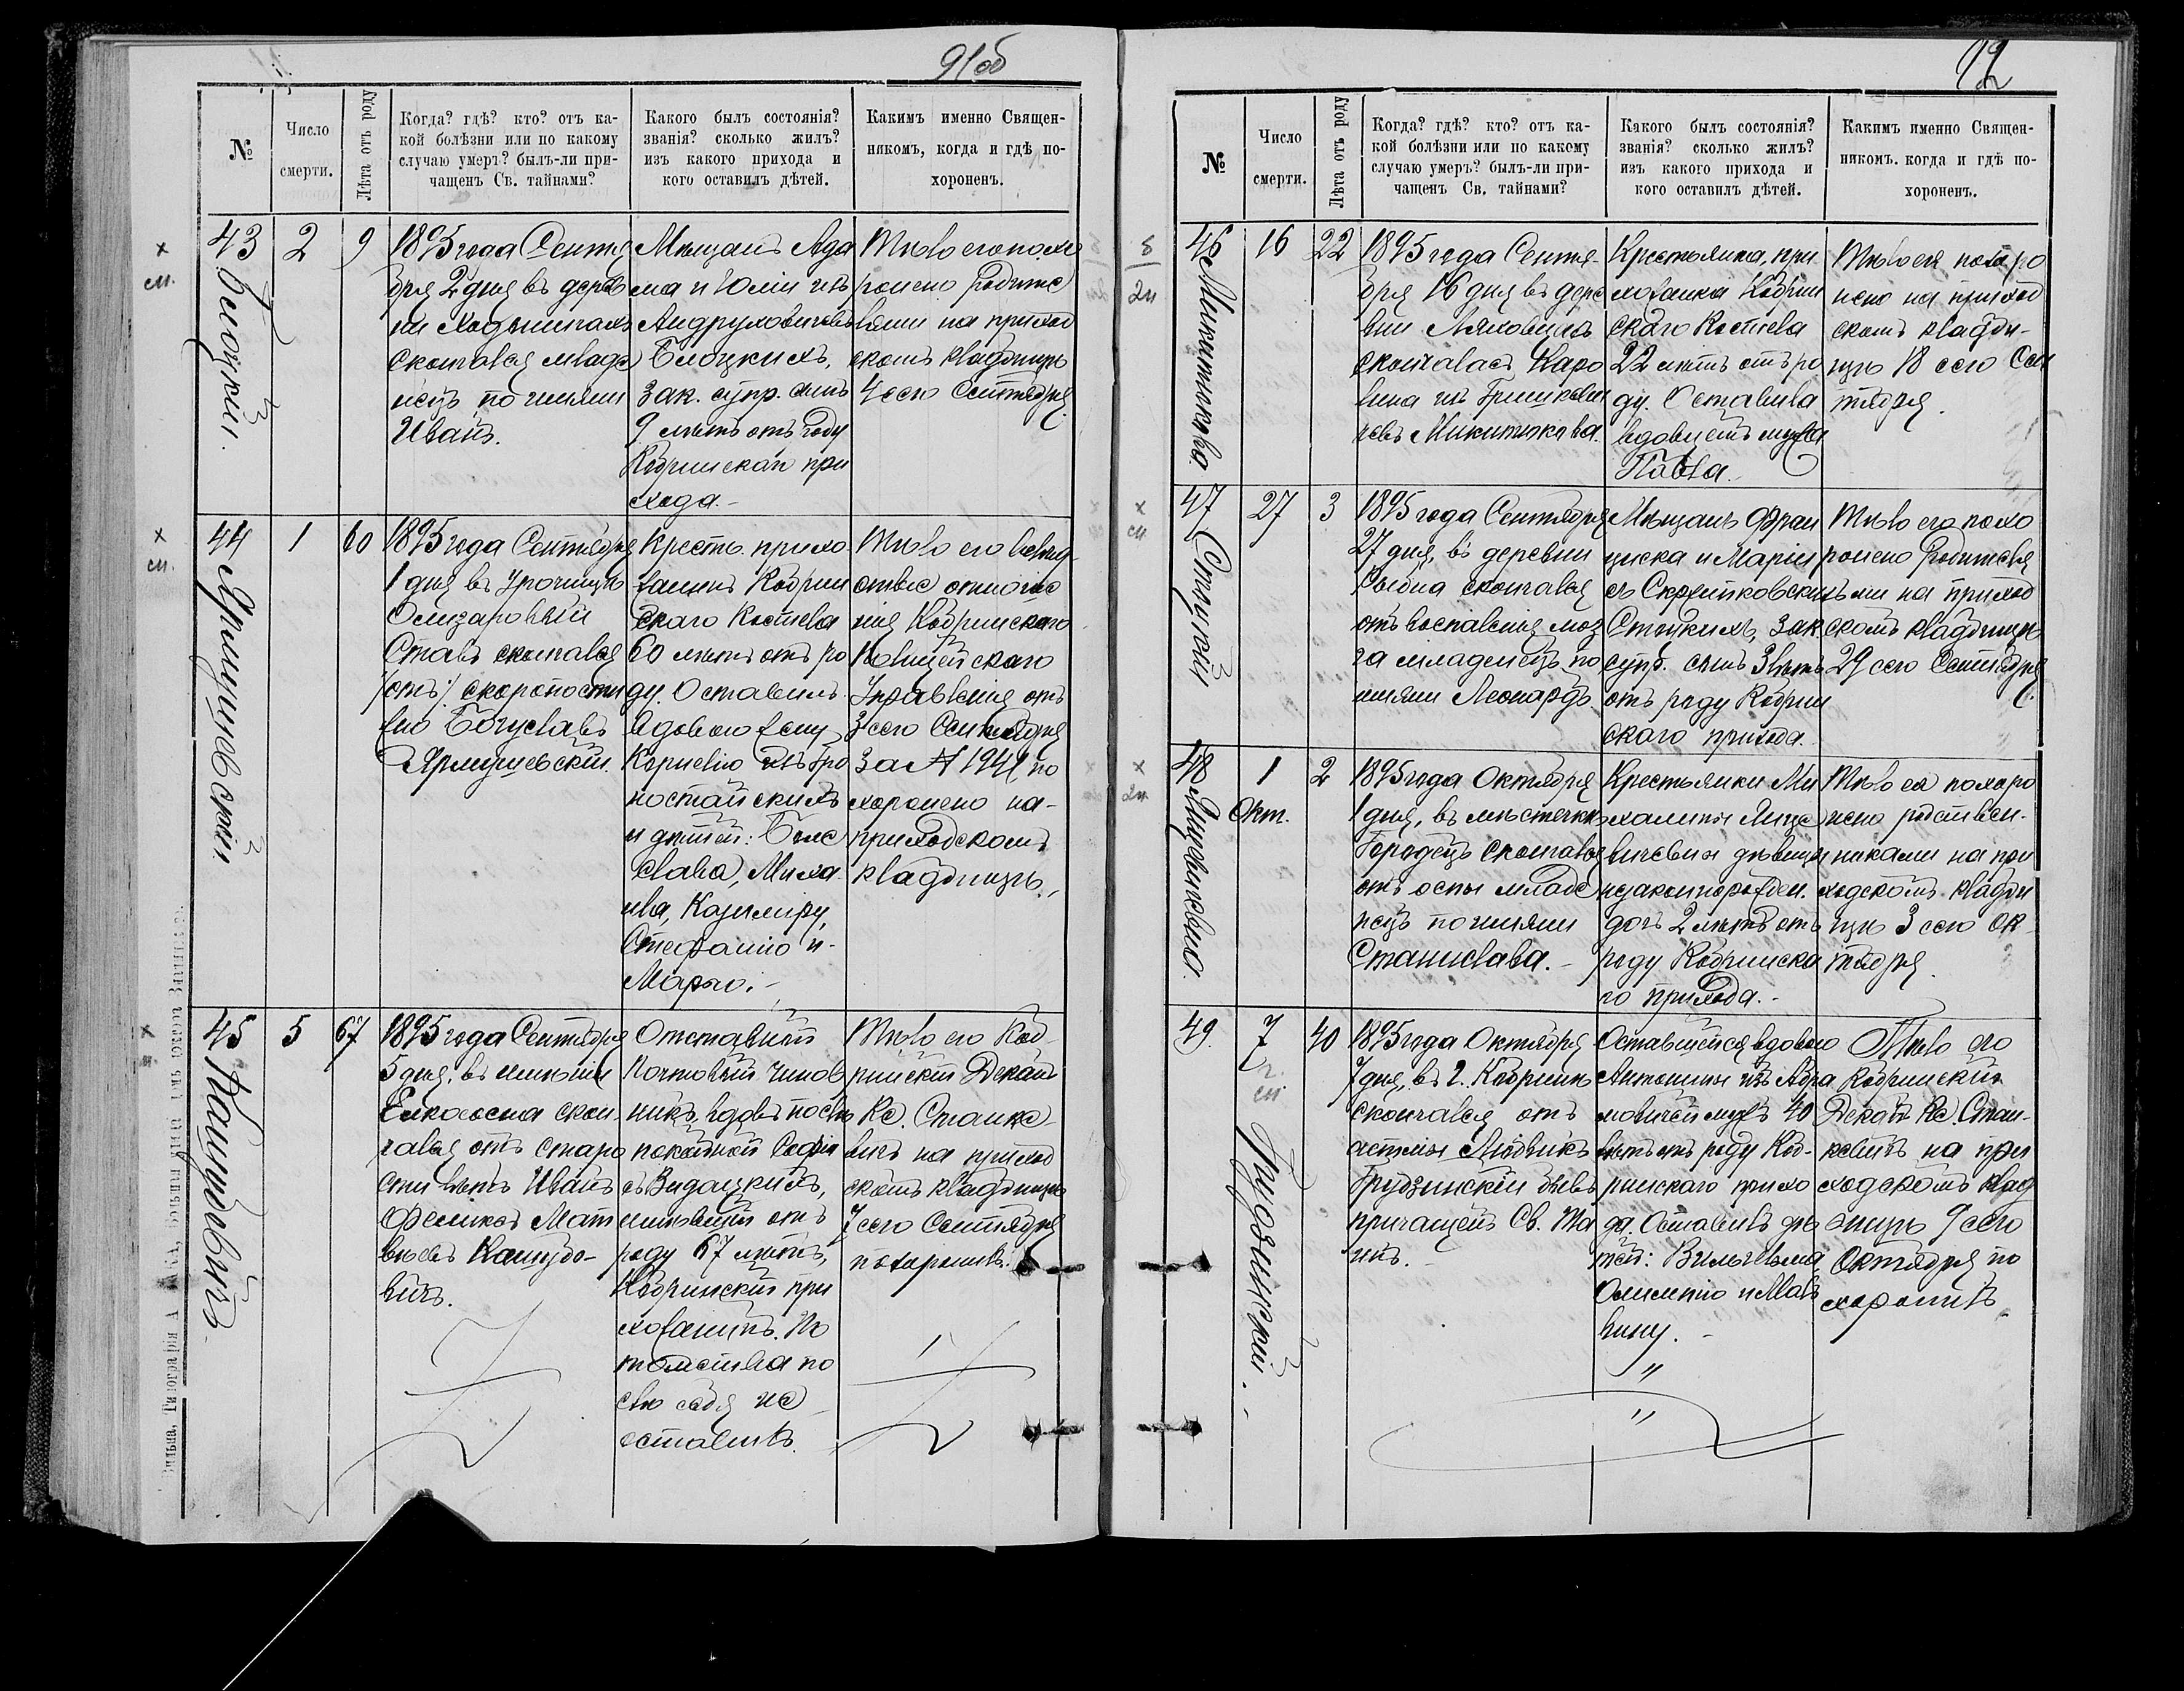 91об
№
Число
смерти.
Лѣта отъ роду
Когда? гдѣ? кто? отъ ка-
кой болѣзни или по какому
случаю умеръ? былъ-ли при-
чащенъ Св. тайнами?
Какого былъ состоянія?
званія? сколько жилъ?
изъ какого прихода и
кого оставилъ дѣтей.
Какимъ именно Священ-
никомъ, когда и гдѣ по-
хороненъ.
43
Блоцкій.
2
9
1895 года Сентя
бря 2 дня въ дерев
ни
скончался младе
нецъ по имени
Иванъ.
Мѣщанъ Ада
ма и Юліи изъ
Андруховичевъ
Блоцкихъ,
зак. супр. сынъ
9 лѣтъ отъ роду
Кобринскаго при
хода.-
Тѣло его похо
ронено родите
лями на приход
скомъ кладбищѣ
4 сего Сентября.
44
Ярмушевскій.
1
60
1895 года Сентября
1 дня въ Урочищѣ
Олизаровый
Ставъ скончался
/отъ/ скоропостиж
но Богуславъ
Ярмушевскій.
Кресть. прихо
жанинъ Кобрин
скаго Костела
60 лѣтъ отъ ро
ду. Оставилъ
вдовою жену
Корнелію изъ Гро
ностайскихъ
и дѣтей: Боле
слава, Миха
ила, Казимиру,
Стефанію и-
Марью.-
Тѣло его вслѣд-
ствіе отноше
нія Кобринскаго
Полицейскаго
Управленія отъ
3 сего Сентября
за № 1941 по
хоронено на-
приходскомъ
кладбищѣ.
45
Кашубовичъ
5
67
1895 года Сентября
5 дня, въ имѣніи
скон-
чался отъ старо
сти лѣтъ Иванъ
Феликсъ Мат
вѣевъ
вичъ.
Отставной
Почтовый Чинов
никъ, вдовъ послѣ
покойной Софіи
съ Видацкихъ,
имѣвшій отъ
роду 67 лѣтъ,
Кобринскій при
хожанинъ. По
томства по
слѣ себя не
оставилъ.
Тѣло его Коб-
ринскій Деканъ
Кс. Станке
вичъ на приход
скомъ кладбищѣ
7 сего Сентября
похоронилъ.
Вильна, Типографія
92
№
Число
смерти.
Лѣта отъ роду
Когда? гдѣ? кто? отъ ка-
кой болѣзни или по какому
случаю умеръ? былъ-ли при-
чащенъ Св. тайнами?
Какого былъ состоянія?
званія? сколько жилъ?
изъ какого прихода и
кого оставилъ дѣтей.
Какимъ именно Священ-
никомъ. когда и гдѣ по-
хороненъ.
46
Микитюкова.
16
22
1895 года Сентя-
бря 16 дня въ дере
вни Ляховичахъ
скончалась Каро
лина изъ Гришкеви
чевъ Микитюкова.
Крестьянка, при
хожанка Кобрин
скаго Костела
22 лѣтъ отъ ро
ду. Оставила
вдовцемъ мужа
Павла.-
Тѣло ея похоро
нено на приход
скомъ кладби-
щѣ 18 сего Сен
тября.
47
Стоцкій
27
3
1895 года Сентября
27 дня, въ деревни
Рыбна скончался
отъ воспаленія моз
га младенецъ по
имени Леонардъ
Мѣщанъ Фран
циска и Маріи
съ
Стоцкихъ, зак.
супр. сынъ 3 лѣтъ
отъ роду Кобрин
скаго прихода.
Тѣло его похо
ронено родителя
ми на приход
скомъ кладбищѣ
29 сего Сентября.
48
Лицкевичевна.
1
Окт.
2
1895 года Октября
1 дня, въ мѣстечкѣ
Городецъ скончалась
отъ оспы младе
нецъ по имени
Станислава.-
Крестьянки Ми
халины Лице
вичевны дѣвицы
незаконнорожден.
дочь 2 лѣтъ отъ
роду Кобринска
го прихода.-
Тѣло ея похоро
нено родствен-
никами на при
ходскомъ кладби
щѣ 3 сего Ок
тября.
49.
Грудзинскій.-
7
40
1895 года Октября
7 дня, въ г. Кобринѣ
скончался отъ
астмы Людвикъ
Грудзинскій бывъ
причащенъ Св. Та
инъ.-
Оставшейся вдовою
Антонины изъ Абра
мовичей мужъ 40
лѣтъ отъ роду Коб-
ринскаго прихо
да. Оставилъ дѣ
тей: Вильгельма,
Олимпію и Маль
вину.-
Тѣло его
Кобринскій
Деканъ Кс. Стан-
кевичъ на при
ходскомъ клад
бищѣ 9 сего
Октября по
хоронилъ